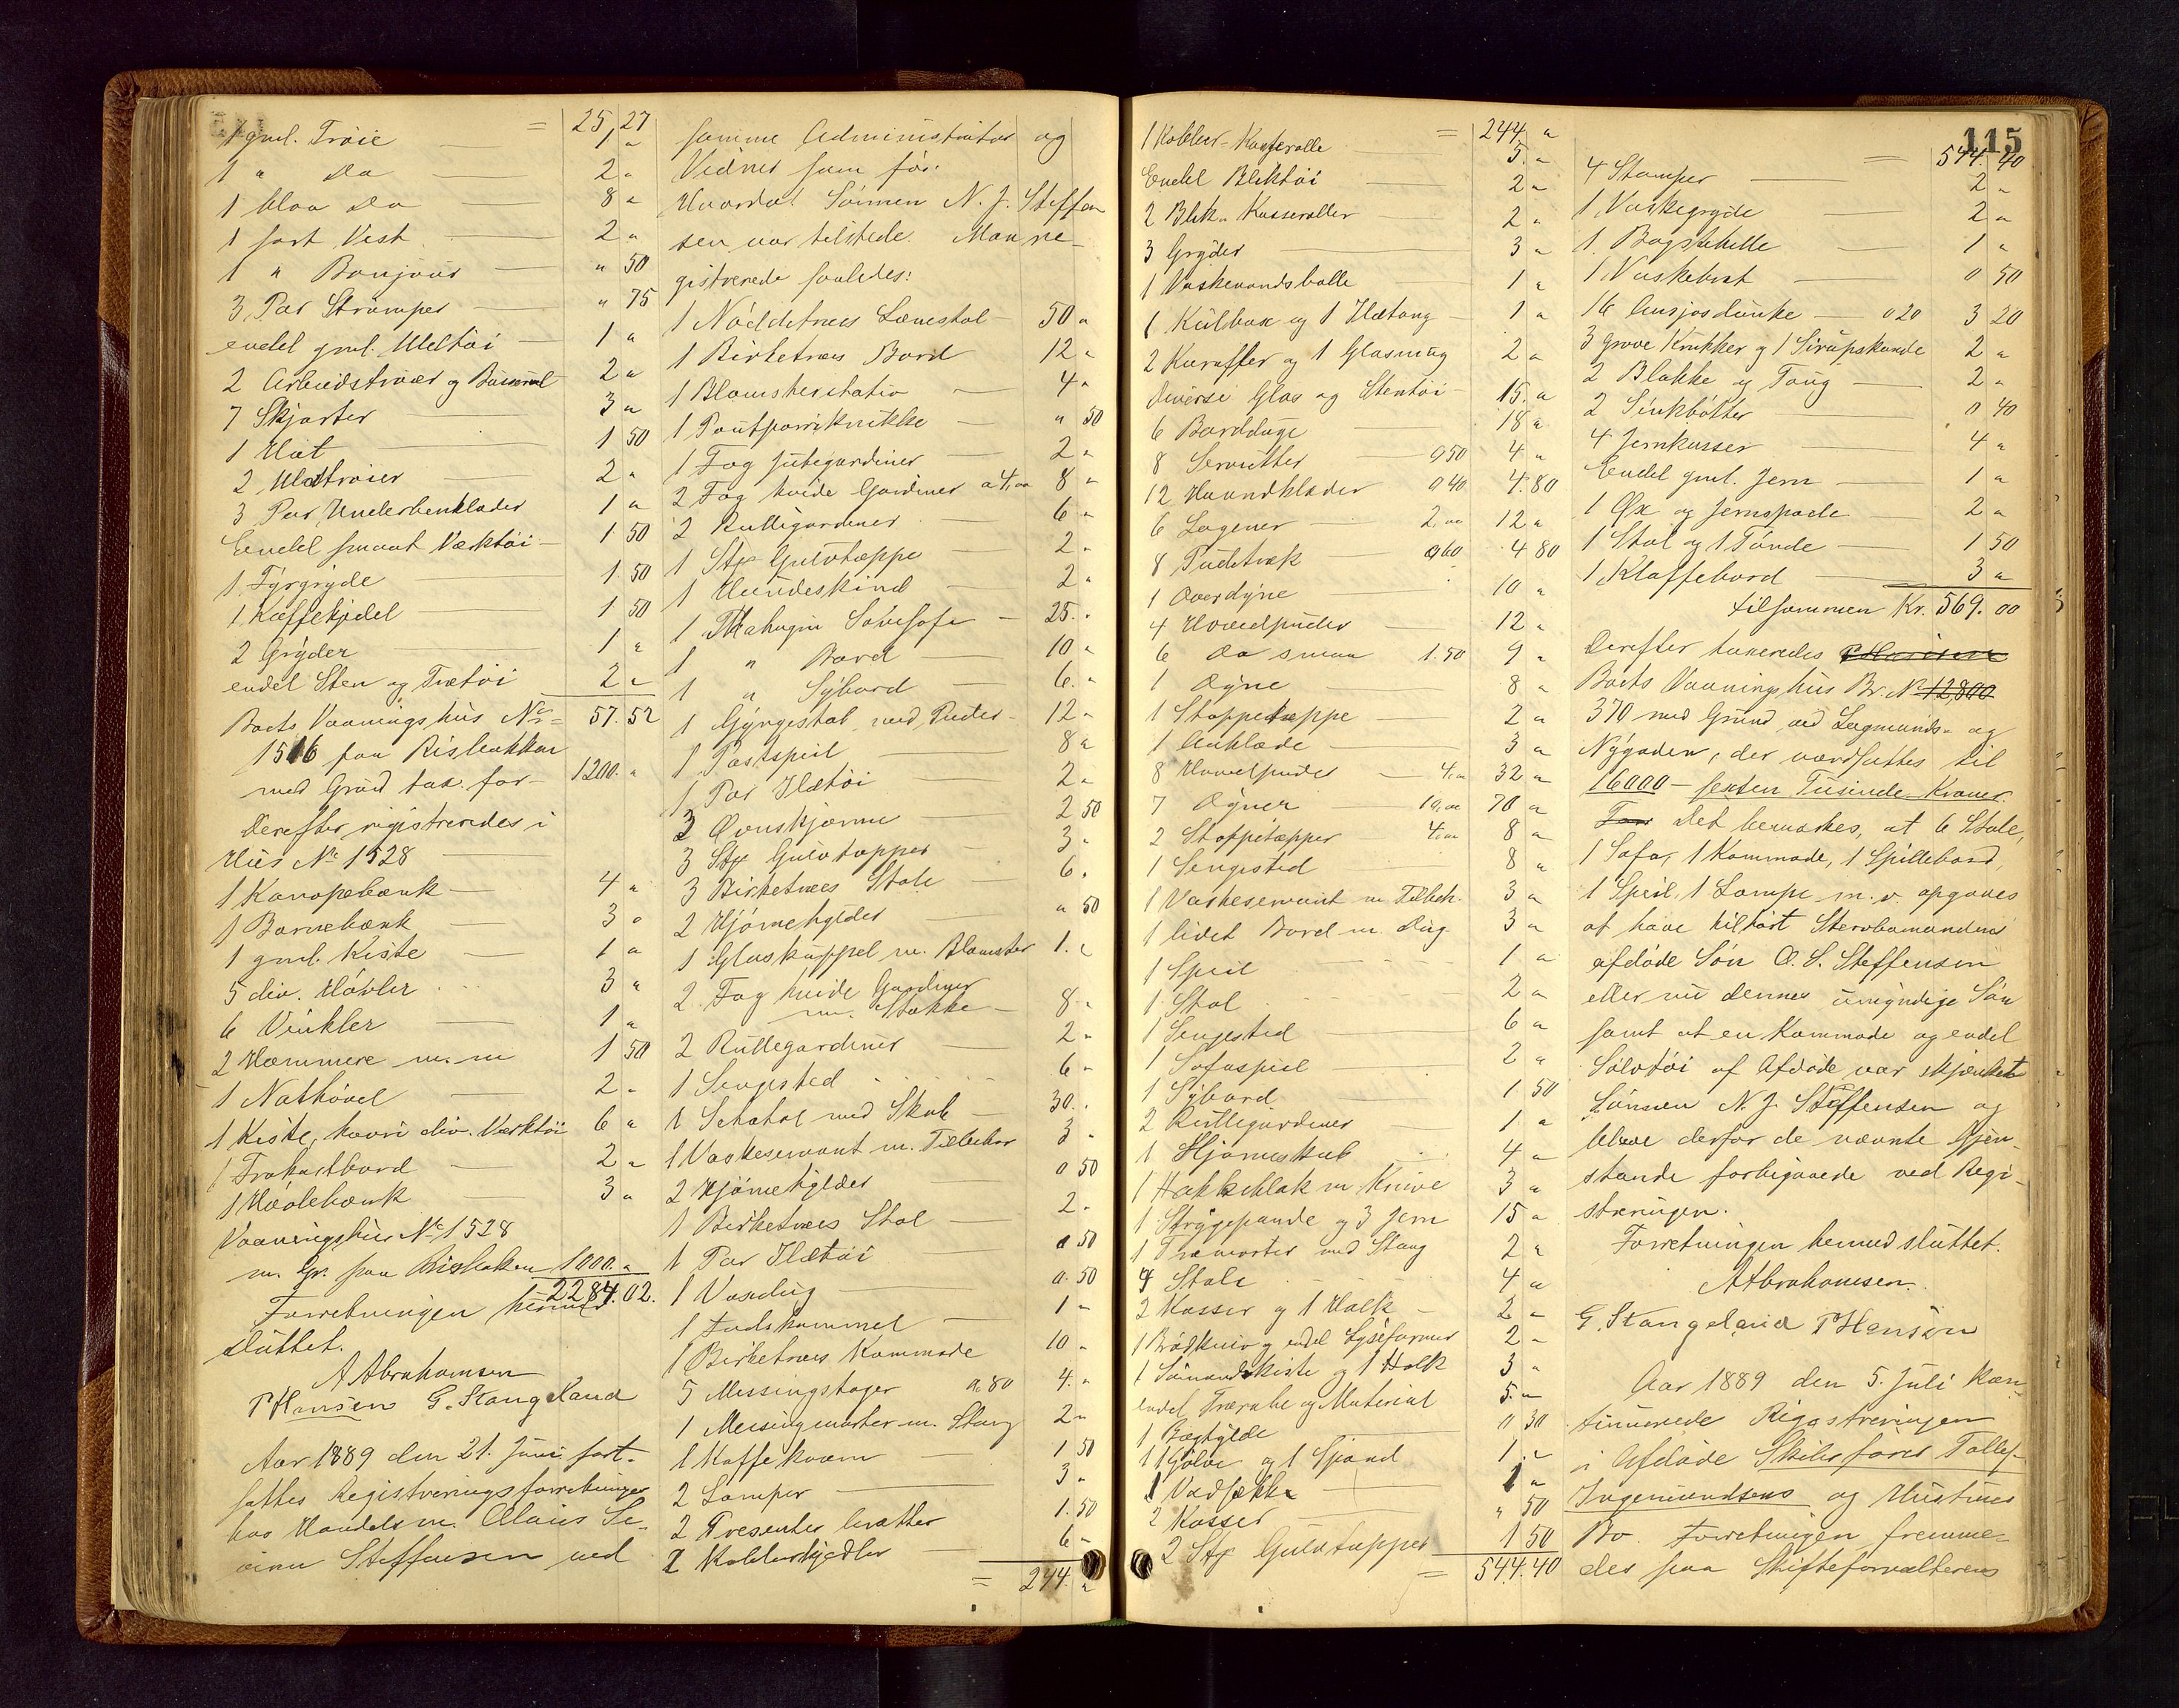 = 25,27
1 gml. Trøie — 1 "
1 " Do — 2 "
1 blaa Do — 8 "
1 sort Vest — 2 "
1 " Bonjour — " 50
3 Par Strømper — " 75
endel gml. Uldtøi — 1 "
2 Arbeidstrøier og — 2 "
7 Skjorter — 3 "
1 Hat — 1 50
2 Uldtrøier — 2 "
3 Par Underbenklæder 1 "
Endel smaat Værktøi — 1 50
1 Fyrgryde — 1.50
1 Kaffekjedel — 1 50
2 Gryder — 1 "
endel Sten og Trætøi 2 "
57.52
Boets Vaaningshus No
1516 paa Risbakken
med Grund tax. for — 1200. "
Derefter registreredes i
Hus No 1528 —
1 Kanapebænk — 4 "
1 Barnebænk — 3 "
1 gml. Kiste — 1 "
5 div. Høvler 3 "
6 Vinkler — 1 "
2 Hammere m. m 1 50
1 Nothøvel — 2 "
1 Kiste, hvori div. Værktøi 6 "
1 Frokostbord — 2 "
1 Høvlebænk 3 "
Vaaningshus No 1528
m. Gr. paa Risbakken 1000. "
2284.02.
Forretningen hermed
sluttet.
A Abrahamsen
P Hansen G. Stangeland
Aar 1889 den 21. Juni fort-
sattes Registreringsforretningen
hos Handelsm. Olaus Se-
verin Steffensen ved
samme Administrator og
Vidner som før.
Hvorda Sønnen N. J. Steffen
sen var tilstede. Man re-
gistrerede saaledes:
1 Nøddetræes Lænestol — 50 "
1 Birketræes Bord 12 "
1 Blomsterstativ — 4 "
1 Poutpourikrukke — " 50
1 Fag Jutegardiner — 2 "
2 Fag hvide Gardiner a 4,00 8 "
2 Rullegardiner — 6 "
1 Stk Gulvtæppe — 2 "
1 Hundeskind — 2 "
1 Mahogni Sovesofa — 25. "
1 " Bord — 10 "
1 " Sybord — 6. "
1 Gyngestol med Puder — 12 "
1 Postspeil — 8 "
1 Par Ildtøi — 2 "
3 Ovnskjærme 2 50
3 Stk Gulvtæpper — 3 "
3 Birketræes Stole — 6 "
2 Hjørnehylder — " 50
1 Glaskuppel m. Blomster 1. "
2 Fag hvide Gardiner
m. Stokke — 8 "
2 Rullegardiner — 2 "
1 Sengested 6 "
1 Schatol med Skab — 30. "
1 Vaskeservant m. Tilbehør 3 "
2 Hjørnehylder — 0 50
1 Birketræes Stol — 2 "
1 Par Ildtøi 0 50
1 Voxdug — 0.50
1 Fodskammel — 1 "
1 Birketræes Kommode 10 "
5 Messingstager 0.80 4. "
1 Messingmorter m. Stang 2 "
1 Kaffekværn — 1 50
2 Lamper — 3 "
2 Presenter bratter 1.50
2 Kobberkjedler — 6 "
= 244. "
= 244. "
1 Kobber-Kasserolle — 5. "
Endel Bliktøi — 2 "
2 Blik-Kasseroller — 2 "
3 Gryder — 3 "
1 Vaskevandsballe — 1 "
1 Kulbox og 1 Ildtang — 1 "
2 Karafler og 1 Glasmug 2 "
diverse Glas og Stentøi — 15. "
6 Bordduge — 18 "
8 Servietter — 0 50 4 "
12 Haandklæder 0 40 4.80
6 Lagener — 2,00 12 "
8 Pudetræk — 0 60 4 80
1 Overdyne 10 "
4 Hovedpuder — 12 "
6 Do smaa 1.50 9 "
1 Dyne — 8 "
1 Stoppetæppe — 2 "
1 Aaklæde — 3 "
8 Hovedpuder — 4,00 32 "
7 Dyner — 10,00 70 "
2 Stoppetæpper 4,00 8 "
1 Sengested — 8 "
1 Vaskeservant m Tilbeh. 3 "
1 lidet Bord m. Dug 3 "
1 Speil 1 "
1 Stol 2 "
1 Sengested — 6 "
1 Sofaspeil — 2 "
1 Sybord — 1 50
2 Rullegardiner — 1 "
1 Hjørneskab 4 "
1 Hakkeblak m Knive 3 "
1 Strygepande og 3 Jern 15 "
1 Træmorter med Stang 2 "
4 Stole 4 "
2 Kasser og 1 Halk — 2 "
1 Brødkniv og endel Lyseformer 2 "
1 Sømandskiste og 1 Halk 3 "
endel Træruhe og Material 5. "
1 Baghylde — 0 30
1 Gølve og 1 Spand 1. "
1 Vadsækk — 1 "
2 Kasser — " 50
2 Stk Gulvtæpper 1 50
= 544.40
115
= 544. 40
4 Stamper — 2 "
1 Vaskegryde — 2 "
1. Bagstehelle — 1 "
1 Vaskebræt — 0 50
16 Ansjosdunke — 0 20 3 20
3 grove Krukker og 1 Sirupskande 2 "
2 Blokke og Toug — 2 "
2 Sinkbøtter — 0 40
4 Jernkasser — 4 "
Endel gml. Jern — 1 "
1 Øx og Jernspade — 2 "
1 Stol og 1 Tønde — 1 50
1 Klaffebord — 3 "
tilsammen Kr. 569. 00
Derefter taxeredes
Boets Vaaningshus Br. No 12,800
370 med Grund ved Lagmands- og
Nygaden, der værdsattes til
16000 — sexten Tusinde Kroner.
For Det bemærkes, at 6 Stole,
1 Sofa, 1 Kommode, 1 Spillebord,
1 Speil, 1 Lampe m. v. opgaves
at have tilhørt Stervbomandens
afdøde Søn O. S. Steffensen
eller nu dennes umyndige Søn
samt at en Kommode og endel
Sølvtøi af Afdøde var skjænket
Sønnen N. J. Steffensen og
bleve derfor de nævnte Gjen-
stande forbigaaede ved Regi-
streringen.
Forretningen hermed sluttet.
A Abrahamsen.
G. Stangeland P Hansen
Aar 1889 den 5. Juli kon-
tinuerede Registreringen
i Afdøde Skibsfører Tollef
Ingemundsens og Hustrues
Bo. Forretningen fremme-
des paa Skifteforvalterens